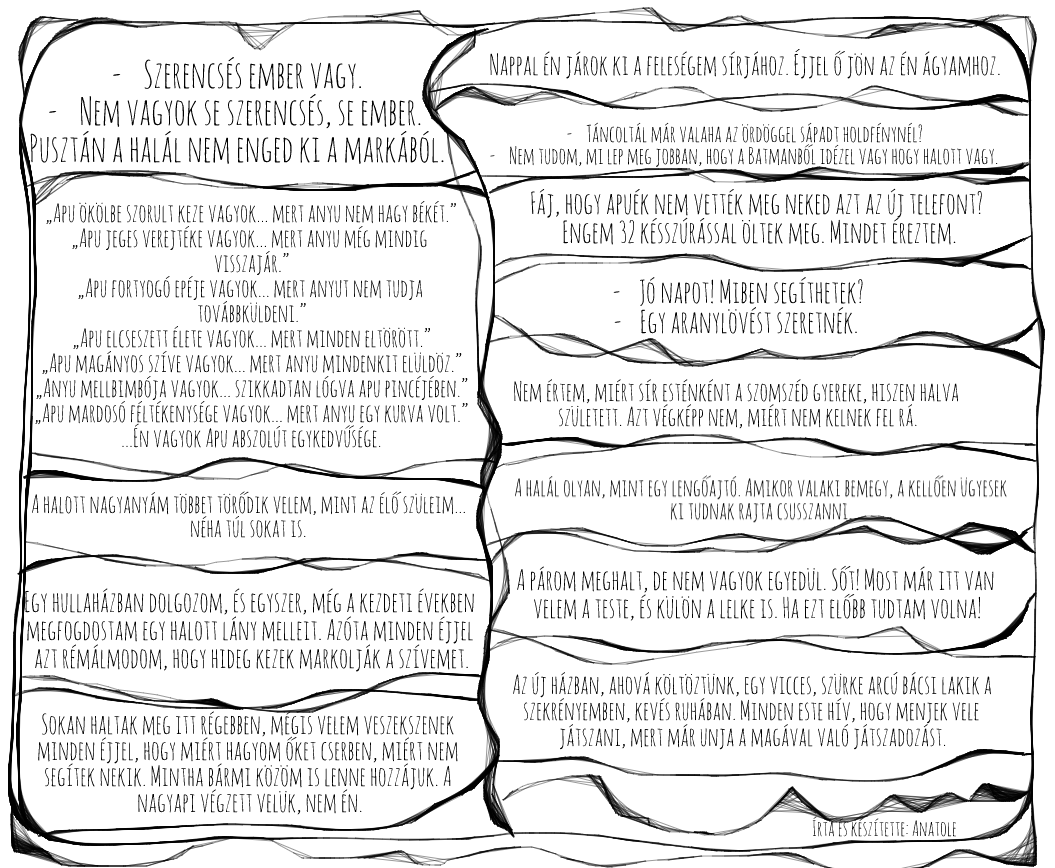 - Szerencsés ember vagy.
- Nem vagyok se szerencsés, se ember.
Pusztán a halál nem enged ki a markából.
„Apu ökölbe szorult keze vagyok... mert anyu nem hagy békét."
„Apu jeges verejtéke vagyok... mert anyu még mindig
visszajár."
„Apu fortyogó epéje vagyok... mert anyut nem tudja
továbbküldeni."
„Apu elcseszett élete vagyok... mert minden eltörött."
„Apu magányos szíve vagyok... mert anyu mindenkit elüldöz."
„Anyu mellbimbója vagyok... szikkadtan lógva apu pincéjében."
„Apu mardosó féltékenysége vagyok... mert anyu egy kurva volt."
...Én vagyok Apu abszolút egykedvűsége.
A halott nagyanyám többet törődik velem, mint az élő szüleim...
néha túl sokat is.
Egy hullaházban dolgozom, és egyszer, még a kezdeti években
megfogdostam egy halott lány melleit. Azóta minden éjjel
azt rémálmodom, hogy hideg kezek markolják a szívemet.
Sokan haltak meg itt régebben, mégis velem veszekszenek
minden éjjel, hogy miért hagyom őket cserben, miért nem
segítek nekik. Mintha bármi közöm is lenne hozzájuk. A
nagyapi végzett velük, nem én.
Nappal én járok ki a feleségem sírjához. Éjjel ő jön az én ágyamhoz.
- Táncoltál már valaha az ördöggel sápadt holdfénynél?
- Nem tudom, mi lep meg jobban, hogy a Batmanből idézel vagy hogy halott vagy.
Fáj, hogy apuék nem vették meg neked azt az új telefont?
Engem 32 késszúrással öltek meg. Mindet éreztem.
- Jó napot! Miben segíthetek?
- Egy aranylövést szeretnék.
Nem értem, miért sír esténként a szomszéd gyereke, hiszen halva
született. Azt végképp nem, miért nem kelnek fel rá.
A halál olyan, mint egy lengőajtó. Amikor valaki bemegy, a kellően ügyesek
ki tudnak rajta csusszanni.
A párom meghalt, de nem vagyok egyedül. Sőt! Most már itt van
velem a teste, és külön a lelke is. Ha ezt előbb tudtam volna!
Az új házban, ahová költöztünk, egy vicces, szürke arcú bácsi lakik a
szekrényemben, kevés ruhában. Minden este hív, hogy menjek vele
játszani, mert már unja a magával való játszadozást.
Írta és készítette: Anatole